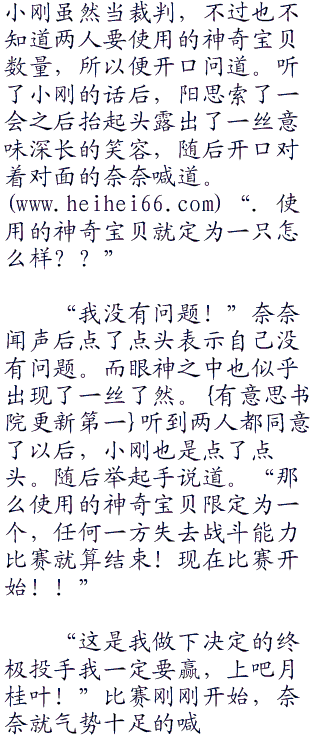 小刚虽然当裁判，不过也不
知道两人要使用的神奇宝贝
数量，所以便开口问道。听
了小刚的话后，阳思索了一
会之后抬起头露出了一丝意
味深长的笑容，随后开口对
着对面的奈奈喊道。
(www.heihei66.com)“．使
用的神奇宝贝就定为一只怎
么样？？”
“我没有问题！”奈奈
闻声后点了点头表示自己没
有问题。而眼神之中也似乎
出现了一丝了然。{有意思书
院更新第一}听到两人都同意
了以后，小刚也是点了点
头。随后举起手说道。“那
么使用的神奇宝贝限定为一
个，任何一方失去战斗能力
比赛就算结束！现在比赛开
始！！”
“这是我做下决定的终
极投手我一定要赢，上吧月
桂叶！”比赛刚刚开始，奈
奈就气势十足的喊